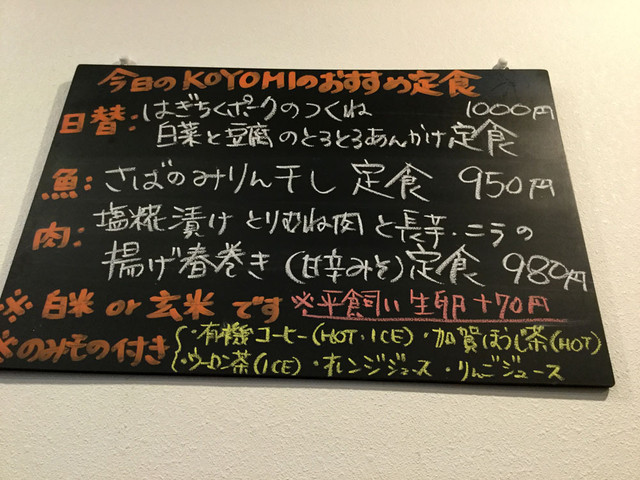 今日のKOYOMIのおすすめ定食
日替: はぎちくポークのつくね 1000円
白菜と豆腐のとろとろあんかけ定食
魚: さばのみりん干し 定食 950円
肉: 塩糀漬け とりむね肉と長芋・ニラの
揚げ春巻き (甘辛みそ)定食 980円
※ 白米 or 玄米 です ※平飼い生卵+70円
※のみもの付き ・有機コーヒー(HOT・ICE) ・加賀ほうじ茶(HOT)
・ウーロン茶(ICE) ・オレンジジュース ・りんごジュース